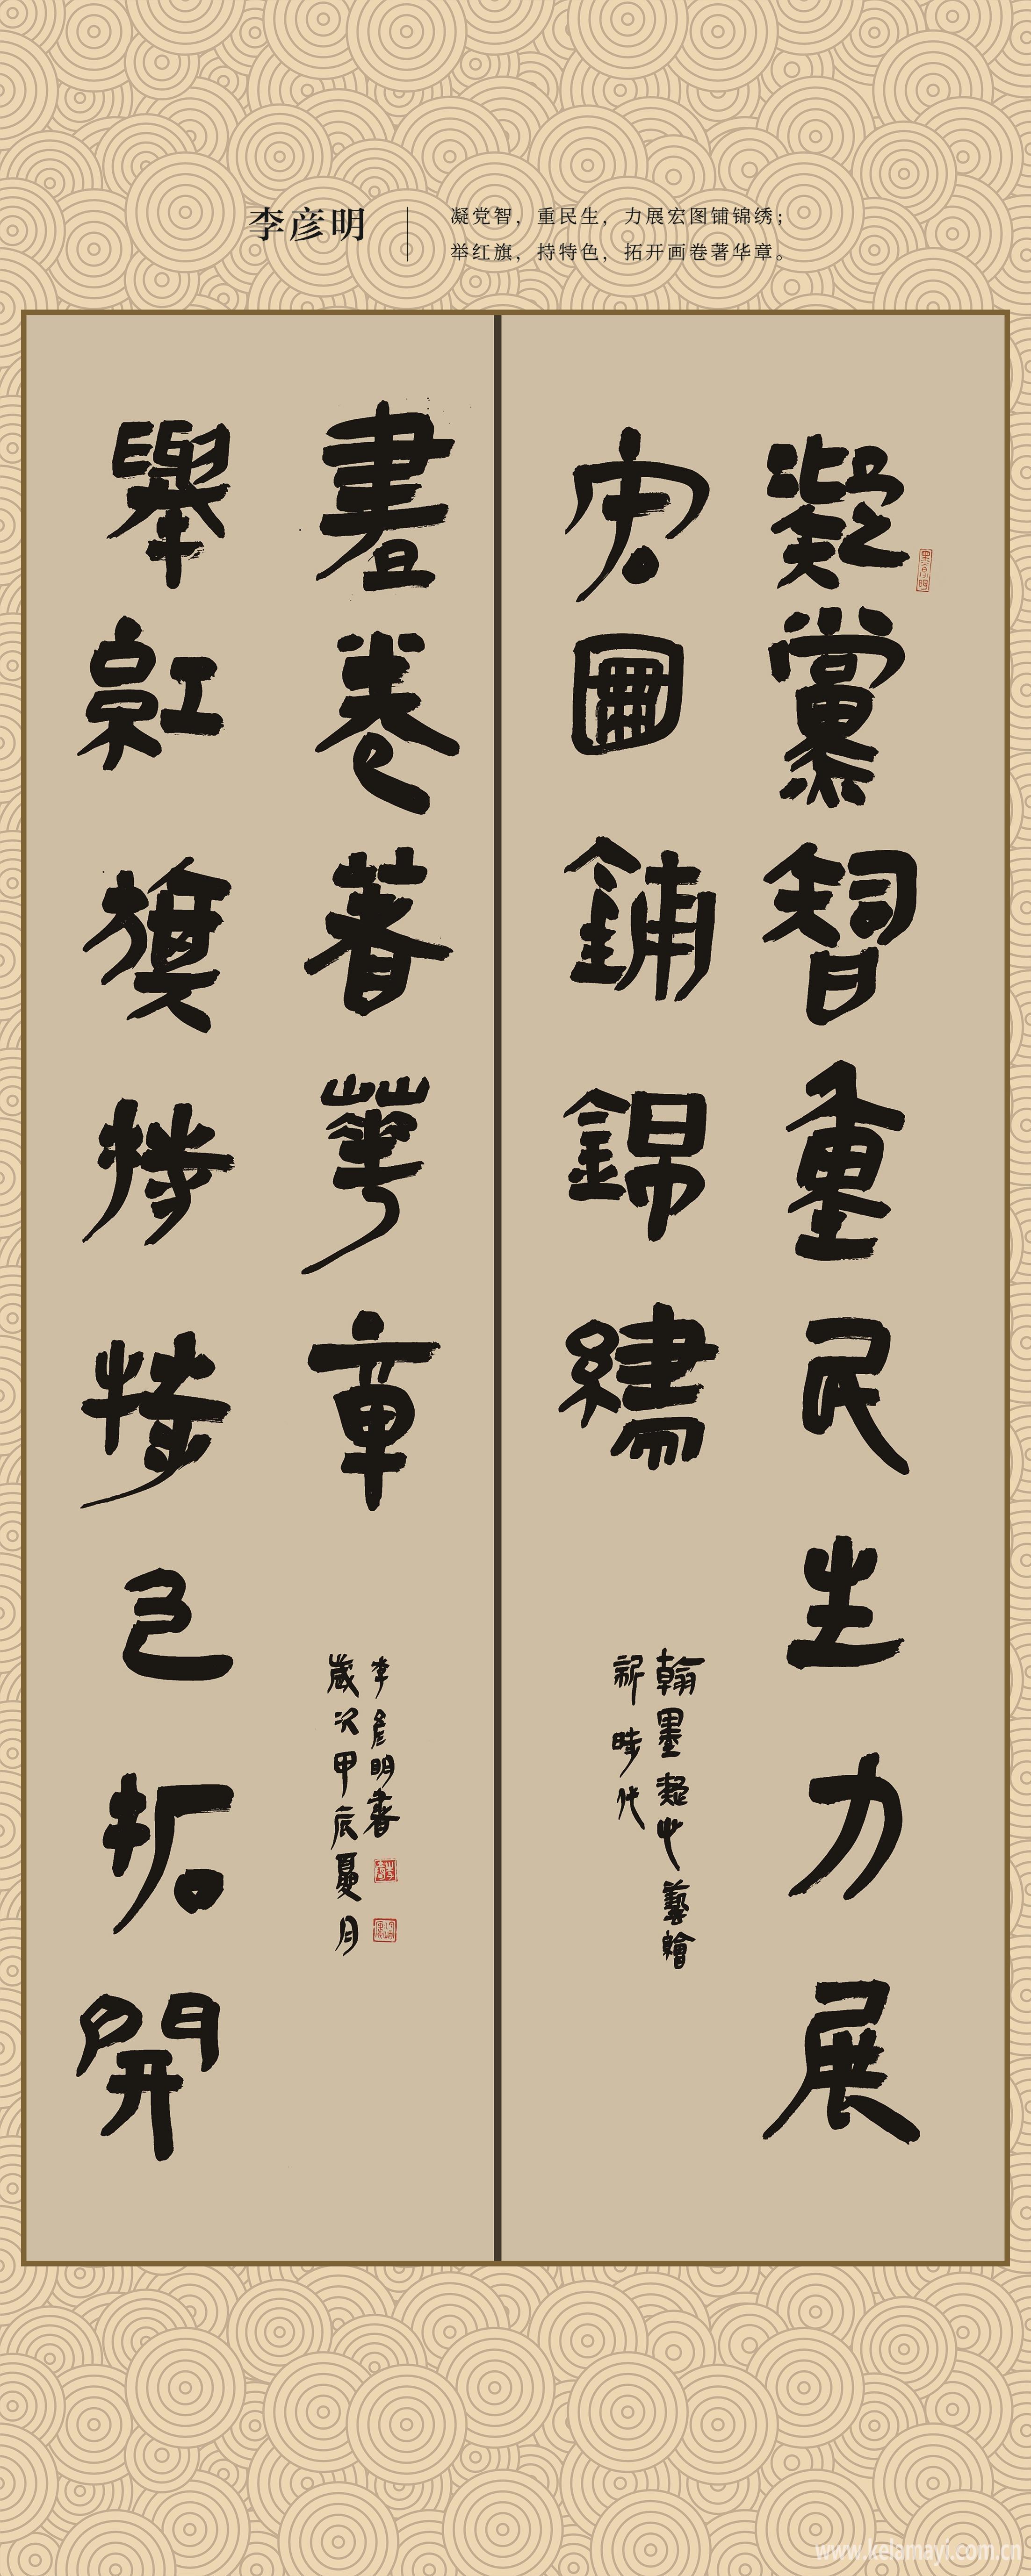 李彦明
凝党智，重民生，力展宏图铺锦绣；
举红旗，持特色，拓开画卷著华章。
凝黨智重民生力展
宏圖鋪錦繡
翰墨凝心藝繪
新時代
舉紅旗持特色拓開
畫卷著華章
李彦明書
歲次甲辰夏月
www.kelamayi.com.cn